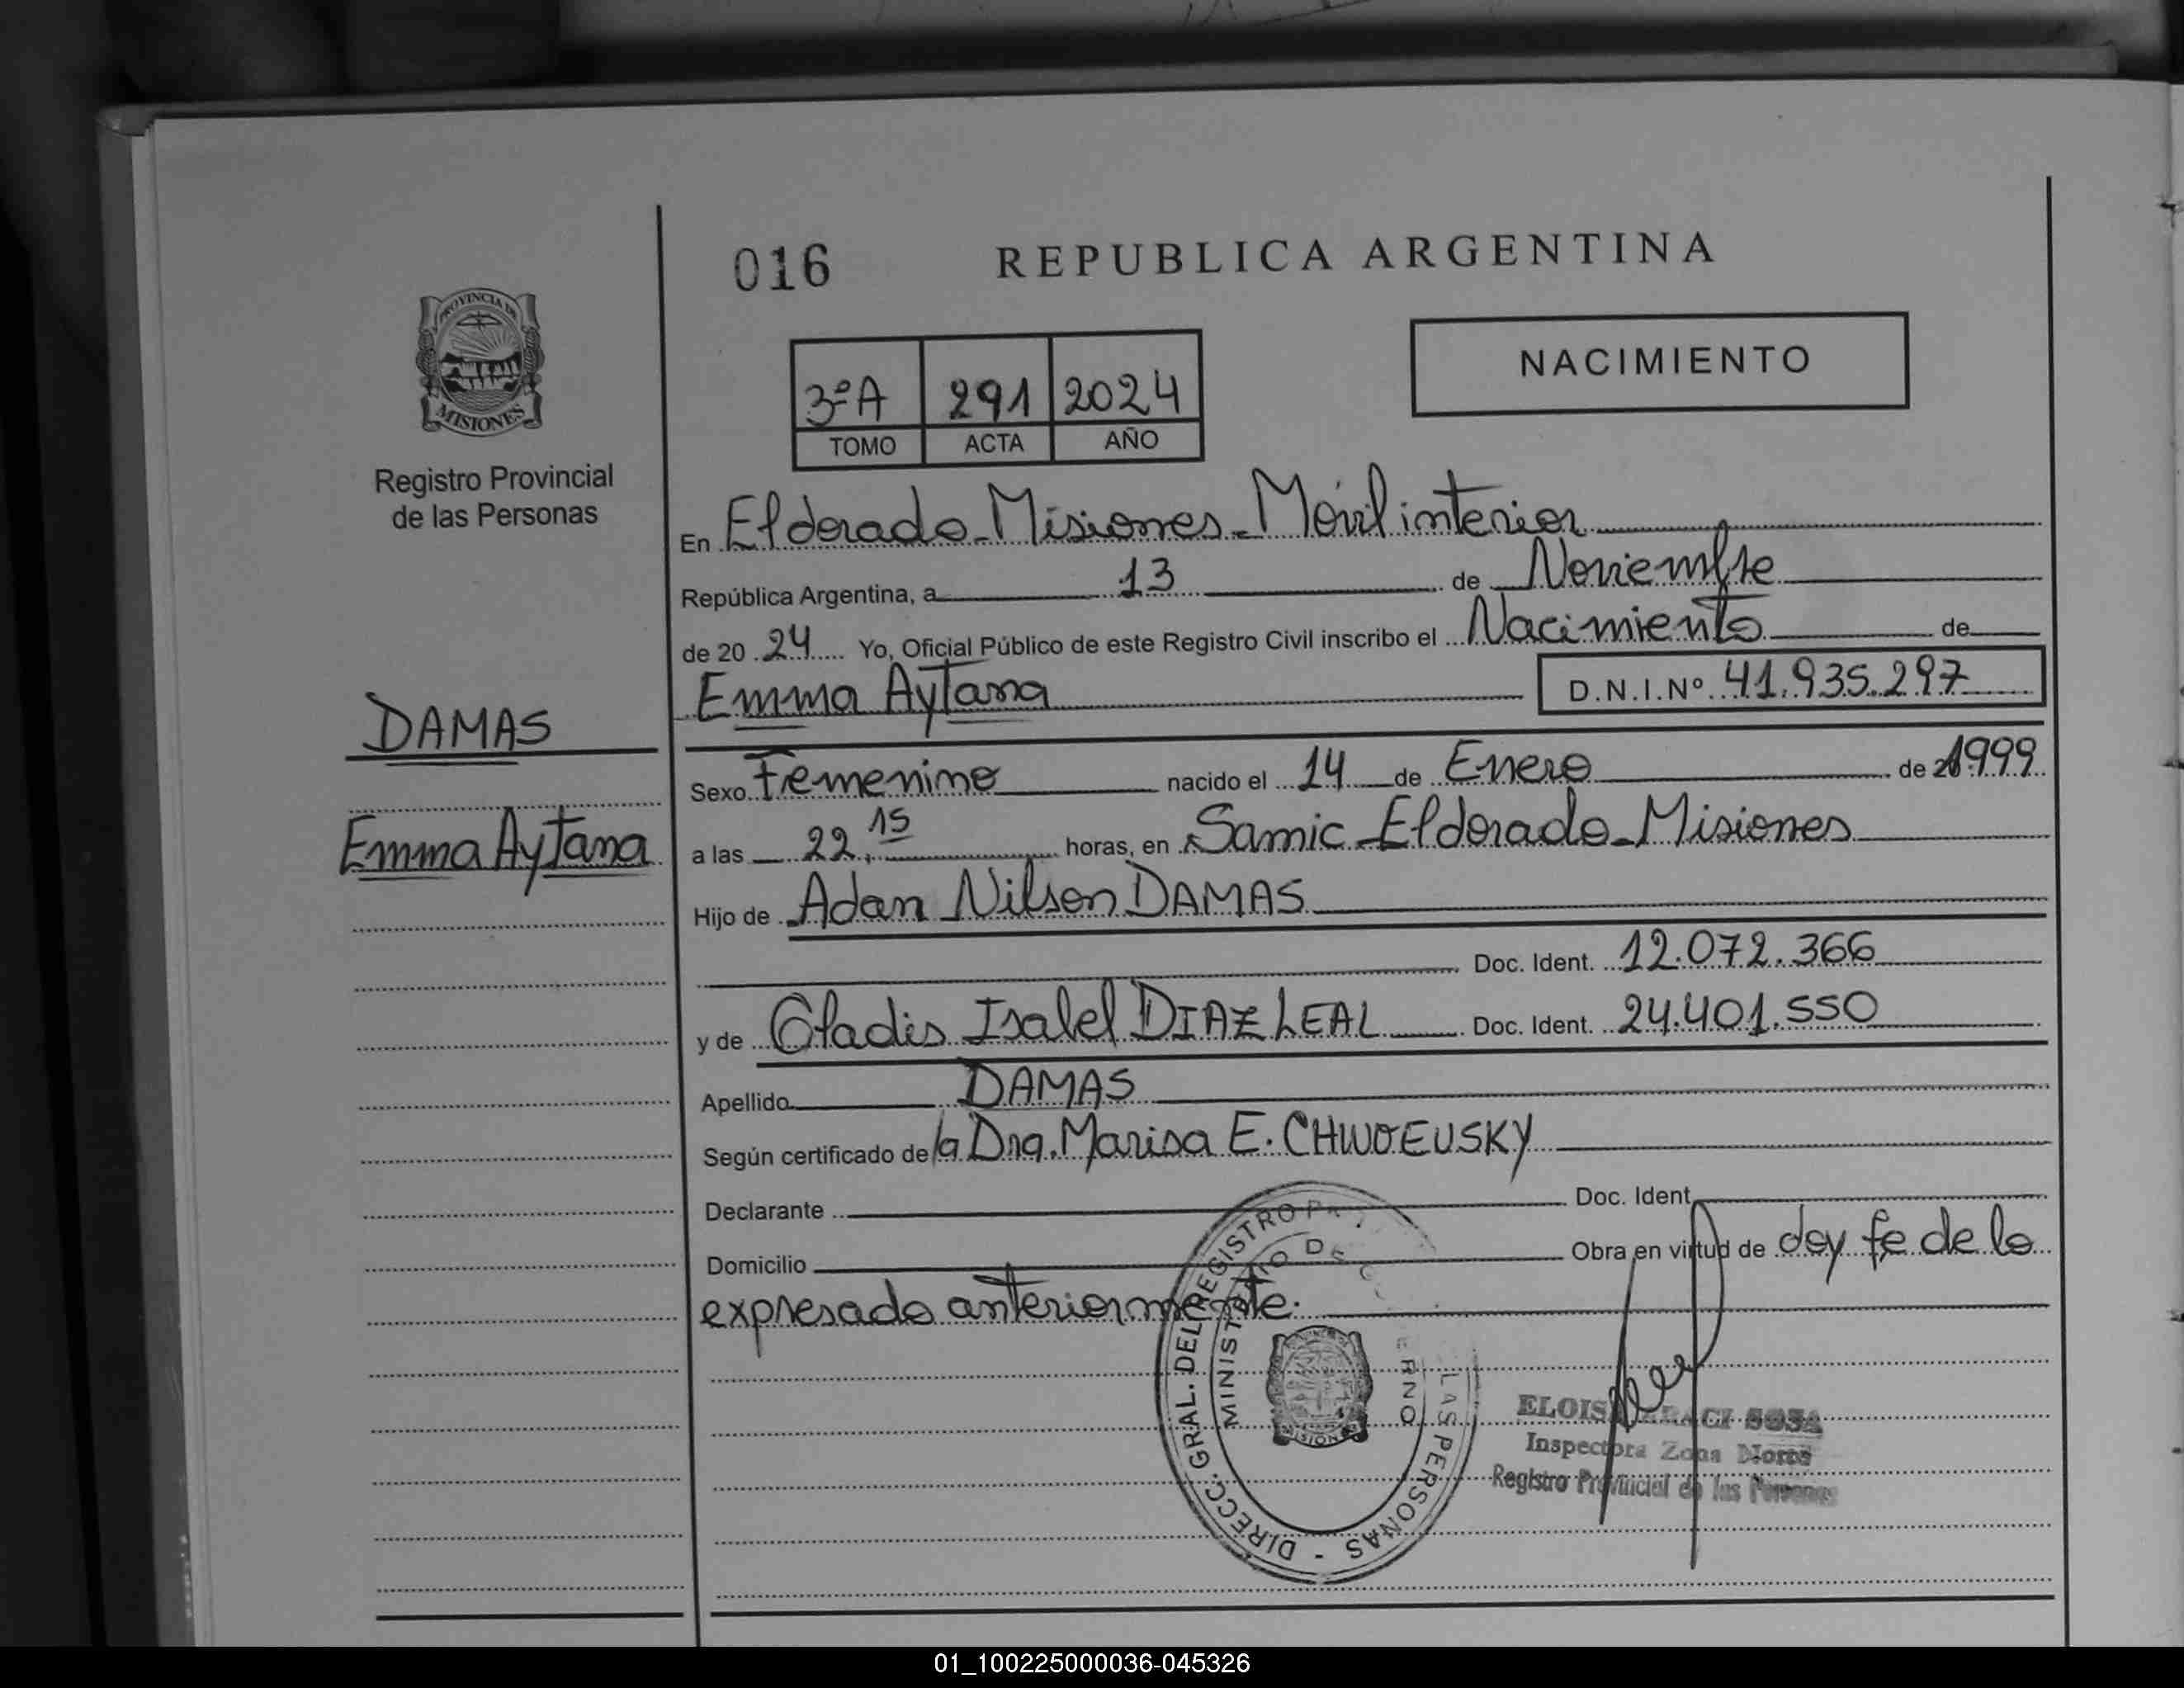 016
REPUBLICA ARGENTINA
PROVINCIA DE
MISIONES
Registro Provincial
de las Personas
NACIMIENTO
3ºA 291 2024
TOMO ACTA AÑO
En Eldorado-Misiones-Móvil interior
República Argentina, a 13 de Noviembre
de 20 24 Yo, Oficial Público de este Registro Civil inscribo el Nacimiento de
Emma Aytana D.N.I.Nº 41.935.297
DAMAS
Sexo Femenino nacido el 14 de Enero de 1999
Emma Aytana
a las 22,15 horas, en Samic-Eldorado-Misiones
Hijo de Adan Nilson DAMAS
Doc. Ident. 12.072.366
y de Gladis Isabel DIAZ LEAL Doc. Ident. 24.401.550
Apellido DAMAS
Según certificado de la Dra. Marisa E. CHWOEUSKY
Declarante Doc. Ident.
Domicilio Obra en virtud de doy fe de lo
expresado anteriormente.
DIRECC. GRAL. DEL REGISTRO LAS PERSONAS -
MINISTERIO DE
MISIONES
SOSA
Inspectora Zona Norte
Registro Provincial de las Personas
01_100225000036-045326